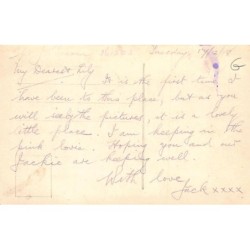 Tuesday,
My Dearest Lily
It is the first time I
have been to this place, but as you
will see by the pictures, it is a lovely
little place. I am keeping in the
pink lovie. Hoping you and our
Jackie are keeping well.
With love
Jack xxxx